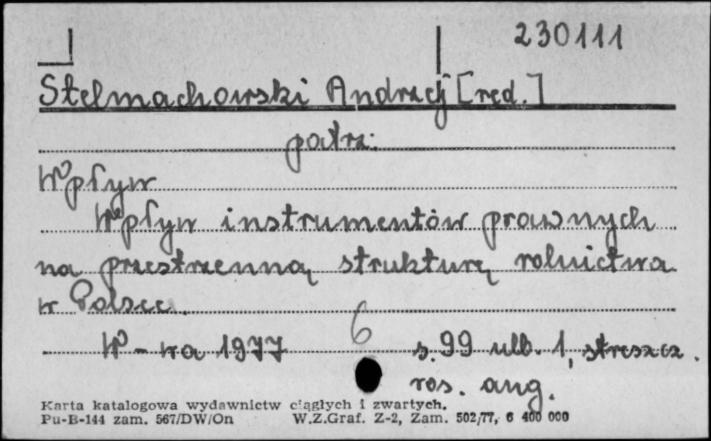 230111
Stelmachowski Andrzej [red.]
patrz:
Wpływ
Wpływ instrumentów prawnych
na przestrzenną strukturę rolnictwa
w Polsce.
6
W-wa 1977 s. 99 ulb. 1, streszcz.
ros. ang.
Karta katalogowa wydawnictw ciągłych i zwartych.
Pu-B-144 zam. 567/DW/On W.Z.Graf. Z-2, Zam. 502/77, 6 400 000